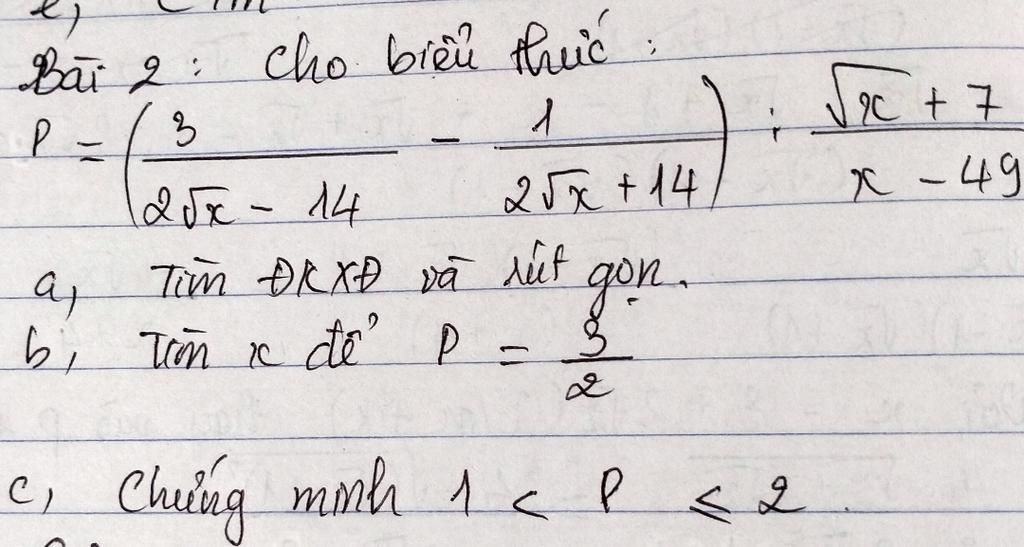 Bài 2: Cho biểu thức:
P = (3/(2√x - 14) - 1/(2√x + 14)) : (√x + 7)/(x - 49)
a, Tìm ĐKXĐ và rút gọn.
b, Tìm x để P = 3/2
c, Chứng minh 1 < P ≤ 2.